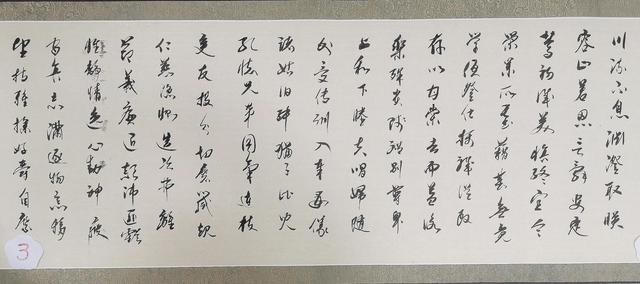 川流不息淵澄取暎
容止若思言辭安定
篤初誠美慎終宜令
榮業所基藉甚無竟
學優登仕攝職從政
存以甘棠去而益詠
樂殊貴賤禮別尊卑
上和下睦夫唱婦隨
外受傅訓入奉母儀
諸姑伯叔猶子比兒
孔懷兄弟同氣連枝
交友投分切磨箴規
仁慈隱惻造次弗離
節義廉退顛沛匪虧
性靜情逸心動神疲
守真志滿逐物意移
堅持雅操好爵自縻
3